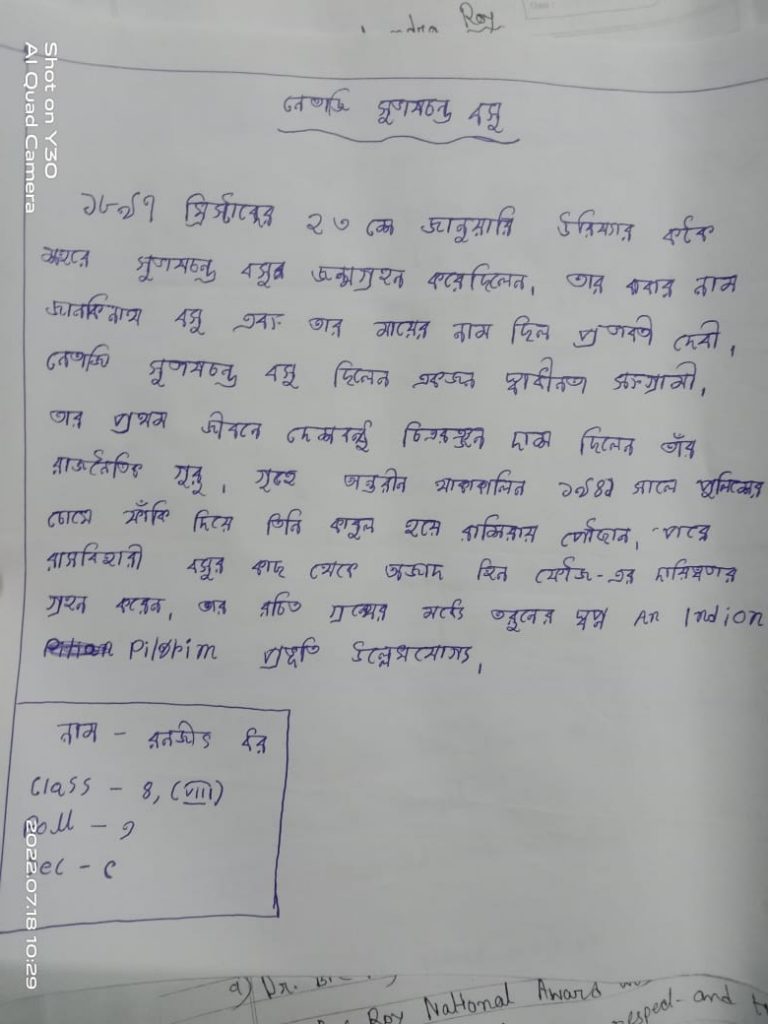 Roy
নেতাজি সুভাষচন্দ্র বসু
১৮৯৭ খ্রিস্টাব্দের ২৩ শে জানুয়ারি উরিষ্যার কটক
শহরে সুভাষচন্দ্র বসুর জন্মগ্রহন করেছিলেন, তার বাবার নাম
জানকিনাথ বসু এবং তার মায়ের নাম ছিল প্রভাবতী দেবী,
নেতাজি সুভাষচন্দ্র বসু ছিলেন একজন স্বাধীনতা সংগ্রামী,
তার প্রথম জীবনে দেশবন্ধু চিত্তরঞ্জন দাশ ছিলেন তাঁর
রাজনৈতিক গুরু, গৃহে অন্তরীন থাকাকালিন ১৯৪১ সালে পুলিশের
চোখে ফাঁকি দিয়ে তিনি কাবুল হয়ে রাশিয়ায় পৌঁছান, পরে
রাসবিহারী বসুর কাছ থেকে আজাদ হিন্দ ফৌজ-এর দায়িত্বভার
গ্রহন করেন, তার রচিত গ্রন্থের মধ্যে তরুনের স্বপ্ন An Indion
Pilgrim প্রভৃতি উল্লেখযোগ্য,
নাম - রনজীত বর
Class - 8, (VIII)
Roll - 9
Sec - C
a) Dr.
Roy National Award
resped- and
Shot on Y30
AI Quad Camera
2022.07.18 10:29